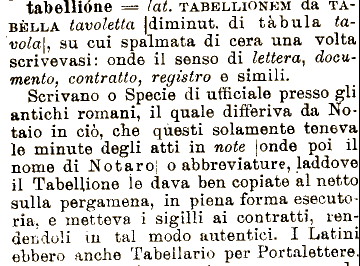 tabellióne = lat. TABELLIONEM da TA-
BÈLLA tavoletta |diminut. di tàbula ta-
vola|, su cui spalmata di cera una volta
scrivevasi: onde il senso di lettera, docu-
mento, contratto, registro e simili.
Scrivano o Specie di ufficiale presso gli
antichi romani, il quale differiva da No-
taio in ciò, che questi solamente teneva
le minute degli atti in note |onde poi il
nome di Notaro| o abbreviature, laddove
il Tabellione le dava ben copiate al netto
sulla pergamena, in piena forma esecuto-
ria, e metteva i sigilli ai contratti, ren-
dendoli in tal modo autentici. I Latini
ebbero anche Tabellario per Portalettere